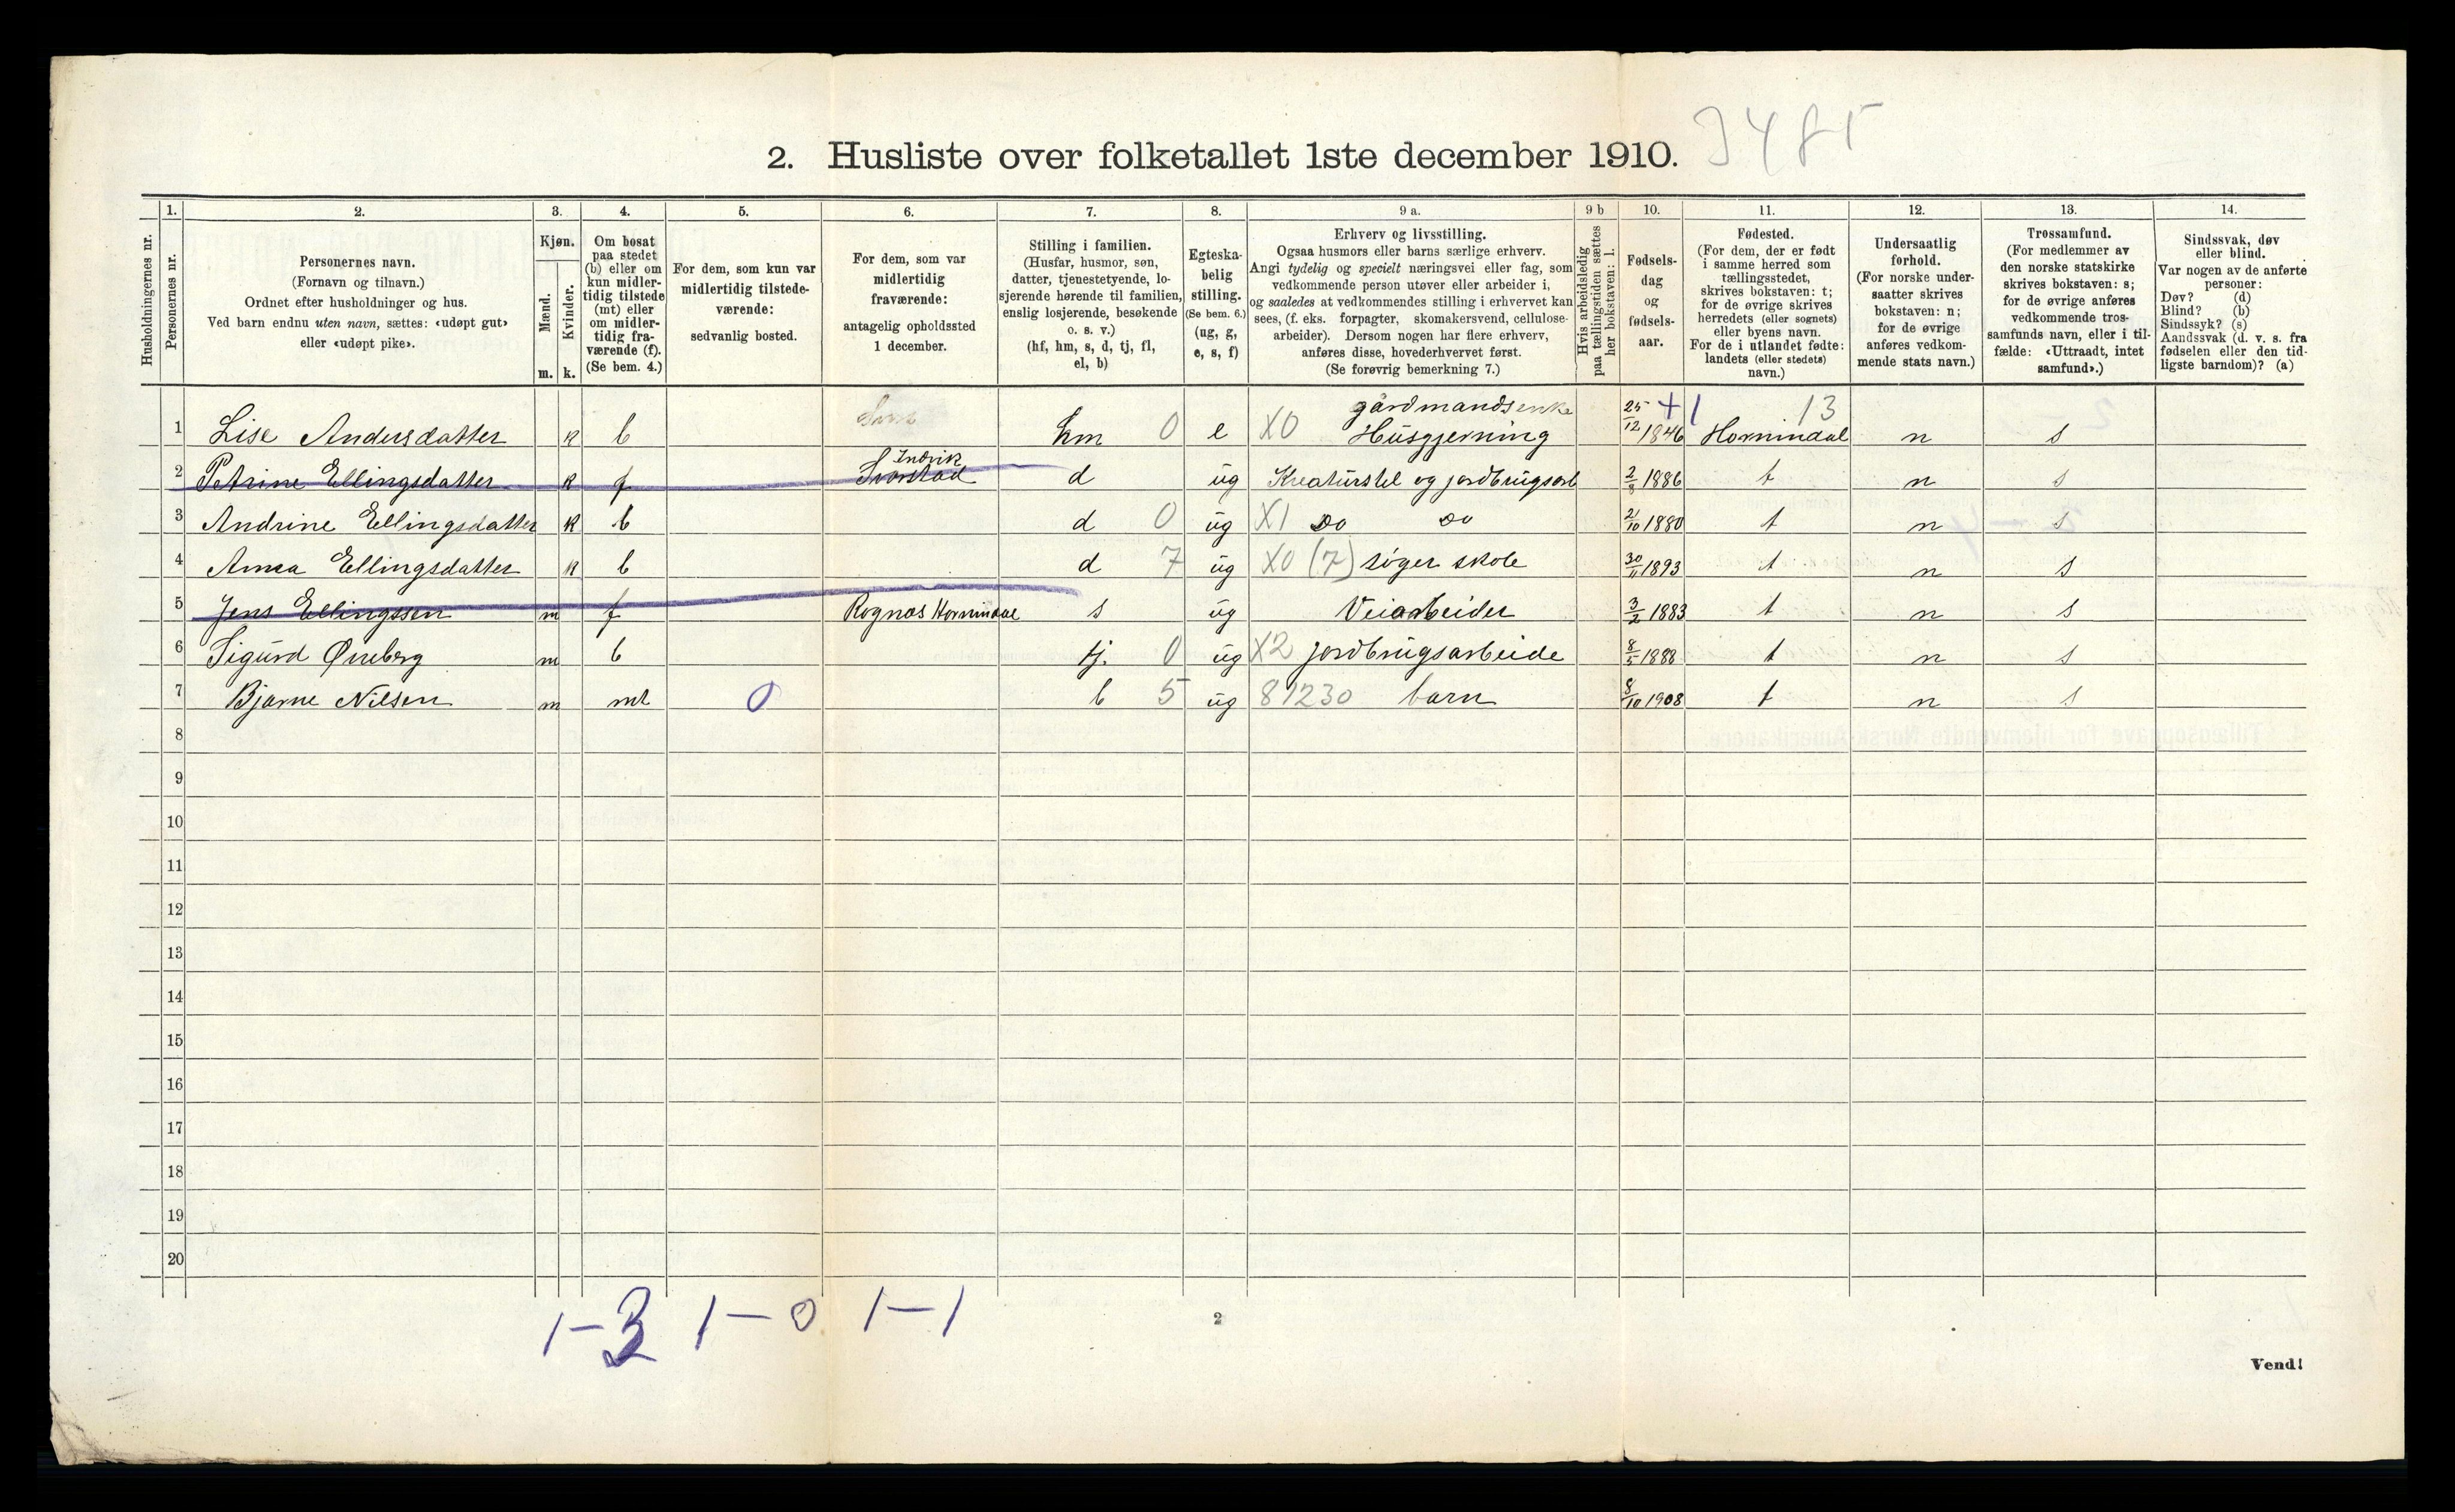 2. Husliste over folketallet 1ste december 1910. 3485
1. 2. 3. 4. 5. 6. 7. 8. 9 a. 9 b 10. 11. 12. 13. 14.
Husholdningernes nr.
Personernes nr.
Personernes navn.
(Fornavn og tilnavn.)
Ordnet efter husholdninger og hus.
Ved barn endnu uten navn, sættes: «udøpt gut»
eller «udøpt pike».
Kjøn.
Mænd.
Kvinder.
m. k.
Om bosat
paa stedet
(b) eller om
kun midler-
tidig tilstede
(mt) eller
om midler-
tidig fra-
værende (f).
(Se bem. 4.)
For dem, som kun var
midlertidig tilstede-
værende:
sedvanlig bosted.
For dem, som var
midlertidig
fraværende:
antagelig opholdssted
1 december.
Stilling i familien.
(Husfar, husmor, søn,
datter, tjenestetyende, lo-
sjerende hørende til familien,
enslig losjerende, besøkende
o. s. v.)
(hf, hm, s, d, tj, fl,
el, b)
Egteska-
belig
stilling.
(Se bem. 6.)
(ug, g,
e, s, f)
Erhverv og livsstilling.
Ogsaa husmors eller barns særlige erhverv.
Angi tydelig og specielt næringsvei eller fag, som
vedkommende person utøver eller arbeider i,
og saaledes at vedkommendes stilling i erhvervet kan
sees, (f. eks. forpagter, skomakersvend, cellulose-
arbeider). Dersom nogen har flere erhverv,
anføres disse, hovederhvervet først.
(Se forøvrig bemerkning 7.)
Hvis arbeidsledig
paa tællingstiden sættes
her bokstaven: l.
Fødsels-
dag
og
fødsels-
aar.
Fødested.
(For dem, der er født
i samme herred som
tællingsstedet,
skrives bokstaven: t;
for de øvrige skrives
herredets (eller sognets)
eller byens navn.
For de i utlandet fødte:
landets (eller stedets)
navn.)
Undersaatlig
forhold.
(For norske under-
saatter skrives
bokstaven: n;
for de øvrige
anføres vedkom-
mende stats navn.)
Trossamfund.
(For medlemmer av
den norske statskirke
skrives bokstaven: s;
for de øvrige anføres
vedkommende tros-
samfunds navn, eller i til-
fælde: «Uttraadt, intet
samfund».)
Sindssvak, døv
eller blind.
Var nogen av de anførte
personer:
Døv? (d)
Blind? (b)
Sindssyk? (s)
Aandssvak (d. v. s. fra
fødselen eller den tid-
ligste barndom)? (a)
gårdmandsenke +1 13
1 Lise Andersdatter k b hm 0 e X0 Husgjerning 25/12 1846 Hornindal n s
Indvik
2 Petrine Ellingsdatter k f d ug Kreaturstel og jordbrugsarb 2/8 1886 t n s
3 Andrine Ellingsdatter k b d 0 ug X1 Do Do 21/10 1880 t n s
4 Anna Ellingsdatter k b d 7 ug X0 (7) søger skole 30/11 1893 t n s
5 Jens Ellingssen m f Rognos Hornindal s ug Veiarbeider 3/2 1883 t n s
6 Sigurd Øreberg m b tj. 0 ug X2 jordbrugsarbeide 8/5 1888 t n s
7 Bjarne Nilsen m mt 0 b 5 ug 81230 barn 8/10 1908 t n s
8
9
10
11
12
13
14
15
16
17
18
19
20
1-3 1-0 1-1
2
Vend!